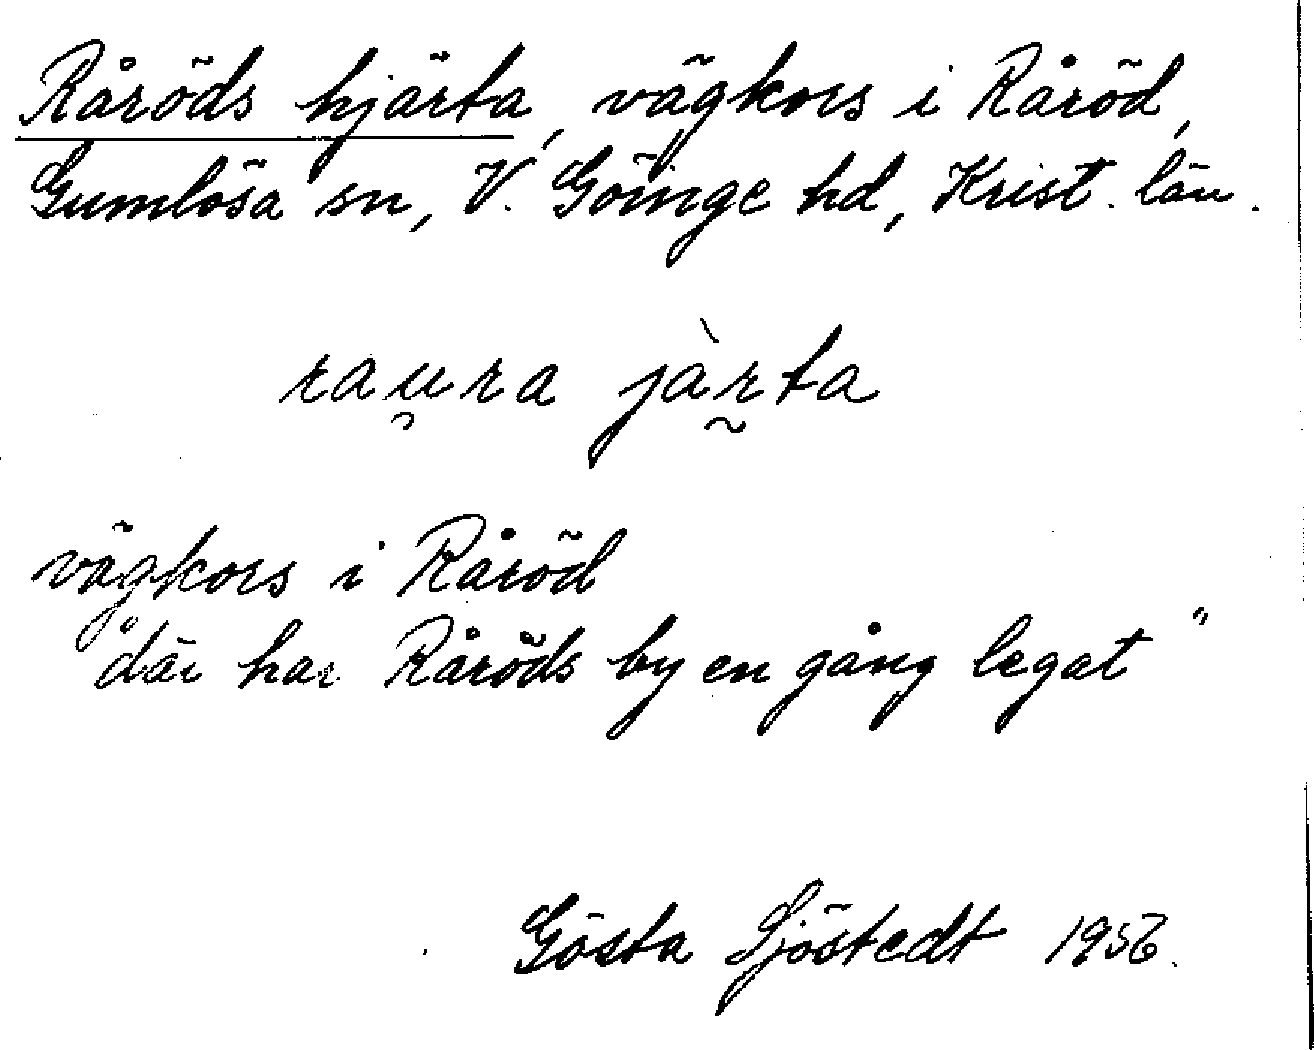 Råröds hjärta, vägkors i Råröd,
Gumlösa sn, V. Göinge hd, Krist. län.
rau̯ra jàr̰ta
vägkors i Råröd
"där har Råröds by en gång legat"
Gösta Sjöstedt 1956.